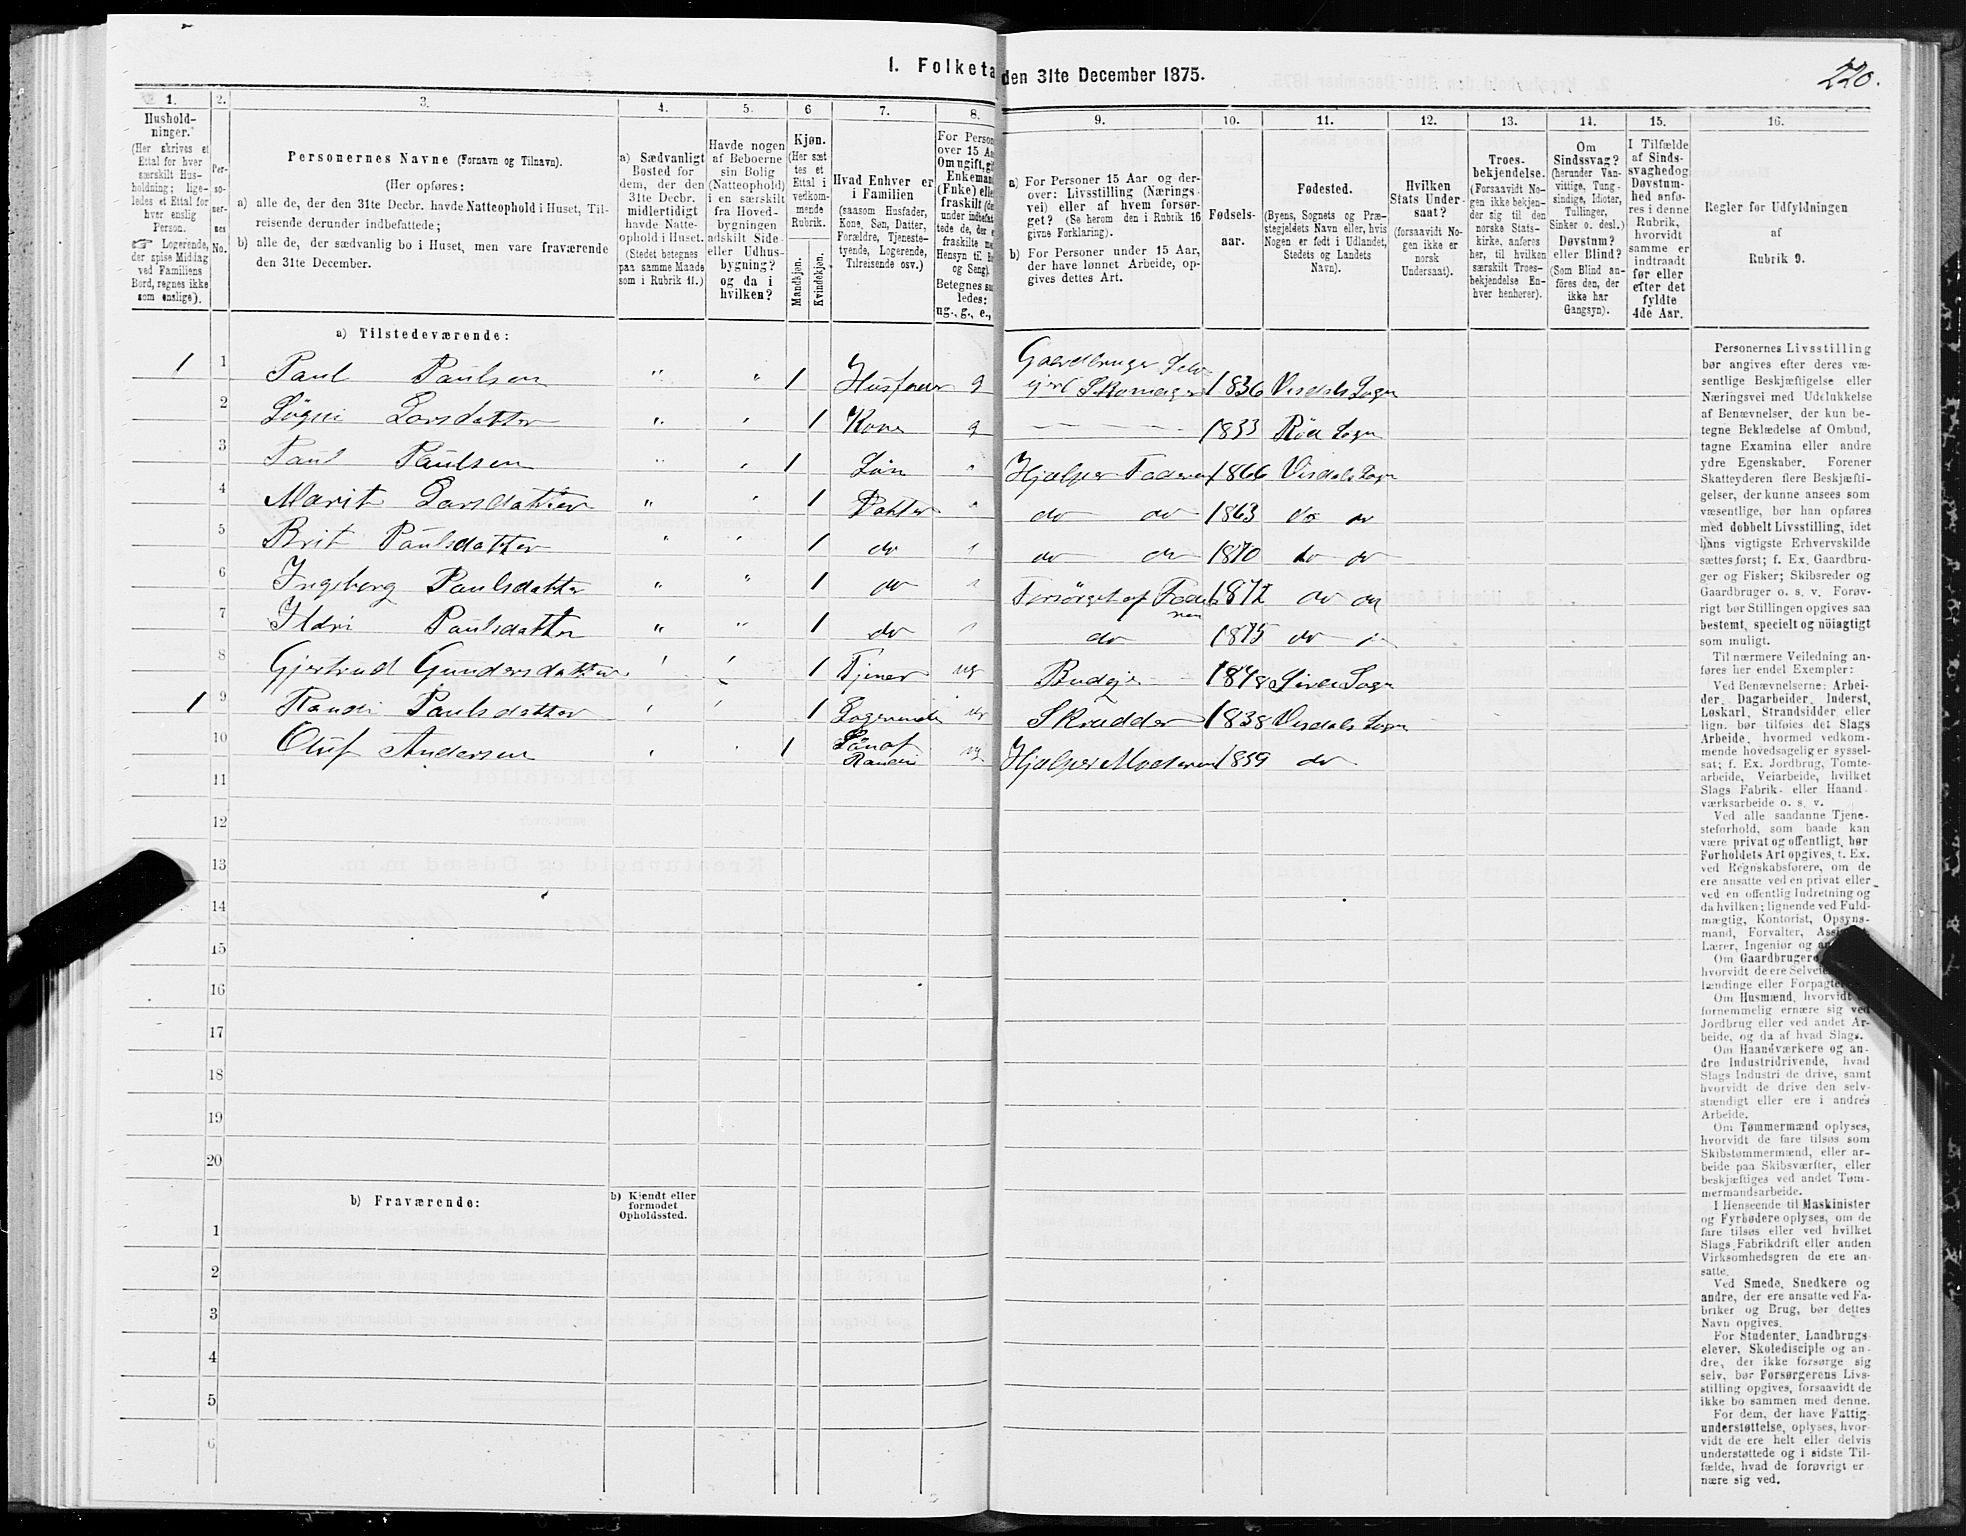 1. Folketa
den 31te December 1875.
220.
1.
2.
3.
4.
5.
6
7.
8.
9.
10.
11.
12.
13.
14.
15.
16.
Hushold-
ninger.
(Her skrives et
Ettal for hver
særskilt Hus-
holdning; lige-
ledes et Ettal for
hver enslig
Person.
☞ Logerende,
der spise Middag
ved Familiens
Bord, regnes ikke
som enslige).
Per-
so-
ner-
nes
No.
Personernes Navne (Fornavn og Tilnavn).
(Her opføres:
a) alle de, der den 31te Decbr. havde Natteophold i Huset, Til-
reisende derunder indbefattede;
b) alle de, der sædvanlig bo i Huset, men vare fraværende
den 31te December.
a) Sædvanligt
Bosted for
dem, der den
31te Decbr.
midlertidigt
havde Natte-
ophold i Huset.
(Stedet betegnes
paa samme Maade
som i Rubrik 11.)
Havde nogen
af Beboerne
sin Bolig
(Natteophold)
i en særskilt
fra Hoved-
bygningen
adskilt Side-
eller Udhus-
bygning?
og da i
hvilken?
Kjøn.
(Her sæt
tes et
Ettal i
vedkom-
mende
Rubrik.
Mandkjøn.
Kvindekjøn.
Hvad Enhver er
i Familien
(saasom Husfader,
Kone, Søn, Datter,
Forældre, Tjeneste-
tyende, Logerende,
Tilreisende osv.)
For Person
over 15 Aa
Om ugift, gi
Enkeman
(Fnke) elle
fraskilt (d
under indbefat-
tede de, der e
fraskilte m
Hensyn til B
og Seng).
Betegnes sa
ledes:
ug., g., e.,
a) For Personer 15 Aar og der-
over: Livsstilling (Nærings
vei) eller af hvem forsør-
get? (Se herom den i Rubrik 16
givne Forklaring).
b) For Personer under 15 Aar,
der have lønnet Arbeide, op-
gives dettes Art.
Fødsels-
aar.
Fødested.
(Byens, Sognets og Præ-
stegjeldets Navn eller, hvis
Nogen er født i Udlandet,
Stedets og Landets
Navn).
Hvilken
Stats Under-
saat?
(forsaavidt No-
gen ikke er
norsk
Undersaat).
Troes-
bekjendelse.
(Forsaavidt No-
gen ikke bekjen-
der sig til den
norske Stats-
kirke, anføres
her, til hvilken
særskilt Troes-
bekjendelse En-
hver henhører).
Om
Sindssvag?
(herunder Van-
vittige, Tung-
sindige, Idioter,
Tullinger,
Sinker o. desl.)
Døvstum?
eller Blind?
(Som Blind an-
föres den, der
ikke har
Gangsyn).
I Tilfælde
af Sinds-
svaghed og
Døvstum-
hed anfø-
res i denne
Rubrik,
hvorvidt
samme er
indtraadt
før eller
efter det
fyldte
4de Aar.
Regler for Udfyldningen
af
Rubrik 9.
a) Tilstedeværende:
1 1 Paul Paulsen " " 1 Husfader g Gaardbruger Selv
ejer Skomager 1836 Visdals Sogn
2 Lars­datter " " 1 Kone g — — — 1833 Rød Sogn
3 Paul Paulsen " " 1 Søn " Hjælper Faderen 1866 Visdals Sogn
4 Marit Larsdatter " " 1 Datter " do do 1863 do do
5 Brit Paulsdatter " " 1 do " do do 1870 do do
6 Ingeborg Paulsdatter " " 1 do " Forsørget af Fade
ren 1872 do do
7 Ildri Paulsdatter " " 1 do " do 1875 do "
8 Gjertrud Gundersdatter " " 1 Tjener ug Budeje 1848 Sogn
1 9 Randi Paulsdatter " " 1 Logerende ug Skrædder 1838 Visdals Sogn
10 Oluf Andersen " " 1 Søn af
Randi ug Hjælper Moderen 1859 do
11
12
13
14
15
16
17
18
19
20
b) Fraværende:
b) Kjendt eller
formodet
Opholdssted.
1
2
3
4
5
6
Personernes Livsstilling
bør angives efter deres væ-
sentlige Beskjæftigelse eller
Næringsvei med Udelukkelse
af Benævnelser, der kun be-
tegne Beklædelse af Ombud,
tagne Examina eller andre
ydre Egenskaber. Forener
Skatteyderen flere Beskjæfti-
gelser, der kunne ansees som
væsentlige, bør han opføres
med dobbelt Livsstilling, idet
hans vigtigste Erhvervskilde
sættes først; f. Ex. Gaardbru-
ger og Fisker; Skibsreder og
Gaardbruger o. s. v. Forøv-
rigt bør Stillingen opgives saa
bestemt, specielt og nöiagtigt
som muligt.
Til nærmere Veiledning an-
føres her endel Exempler:
Ved Benævnelserne: Arbei-
der, Dagarbeider, Inderst,
Løskarl, Strandsidder eller
lign. bør tilføies det Slags
Arbeide, hvormed vedkom-
mende hovedsagelig er syssel-
sat; f. Ex. Jordbrug, Tomte-
arbeide, Veiarbeide, hvilket
Slags Fabrik- eller Haand-
værksarbeide o. s. v.
Ved alle saadanne Tjene-
steforhold, som baade kan
være privat og offentligt, bør
Forholdets Art opgives, t. Ex.
ved Regnskabsførere, om de
ere ansatte ved en privat eller
ved en offentlig Indretning og
da hvilken; lignende ved Fuld-
mægtig, Kontorist, Opsyns-
mand, Forvalter, Assi
Lærer, Ingeniør og
Om Gaardbrugere
hvorvidt de ere Selveie
lændinge eller Forpagte
Om Husmænd, hvorvidt
fornemmelig ernære sig ved
Jordbrug eller ved andet Ar-
beide, og da af hvad Slags.
Om Haandværkere og an-
dre Industridrivende, hvad
Slags Industri de drive, samt
hvorvidt de drive den selv-
stændigt eller ere i andres
Arbeide.
Om Tømmermænd oplyses,
hvorvidt de fare tilsøs som
Skibstømmermænd, eller ar-
beide paa Skibsværfter, eller
beskjæftiges ved andet Tøm-
mermandsarbeide.
I Henseende til Maskinister
og Fyrbødere oplyses, om de
fare tilsøs eller ved hvilket
Slags Fabrikdrift eller anden
Virksomhedsgren de ere an-
satte.
Ved Smede, Snedkere og
andre, der ere ansatte ved Fa-
briker og Brug, bør dettes
Navn opgives.
For Studenter, Landbrugs-
elever, Skoledisciple og an-
dre, der ikke forsørge sig
selv, bør Forsørgerens Livs-
stilling opgives, forsaavidt de
ikke bo sammen med denne.
For dem, der have Fattig-
understøttelse, oplyses, hvor-
vidt de ere helt eller delvis
understøttede og i sidste Til-
fælde, hvad de forøvrigt er-
nære sig ved.